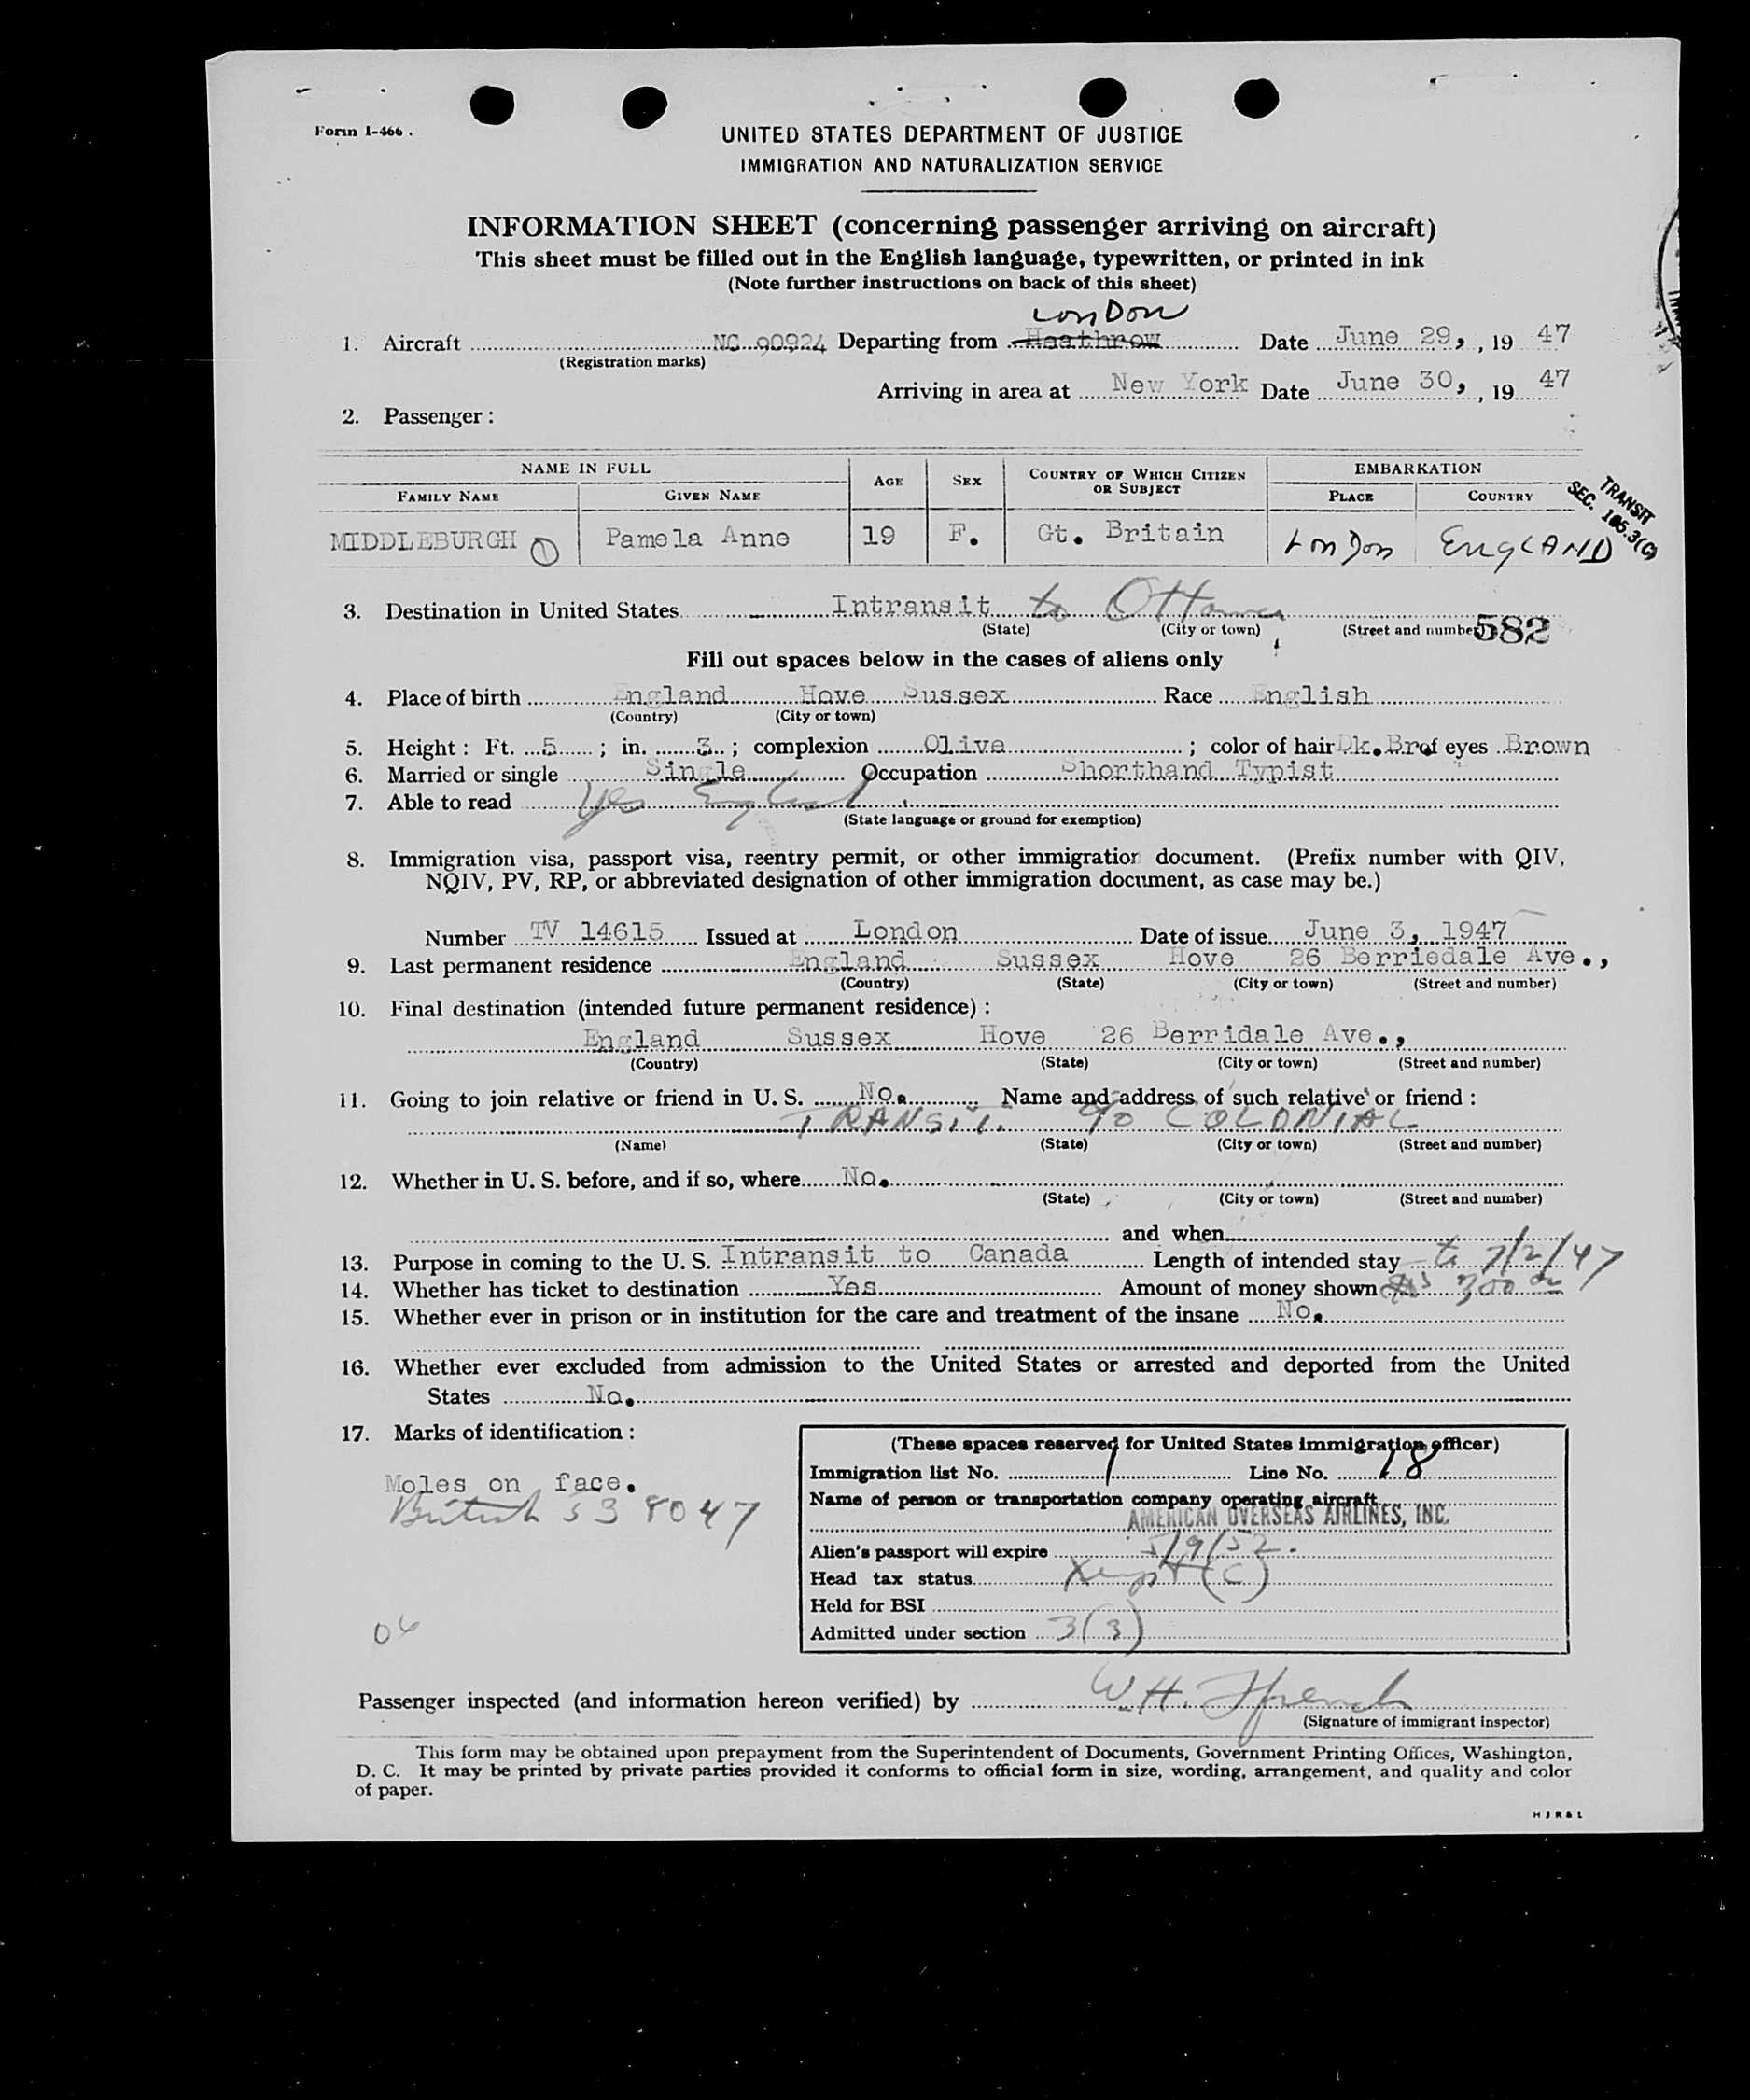 Form I-466.
UNITED STATES DEPARTMENT OF JUSTICE
IMMIGRATION AND NATURALIZATION SERVICE
INFORMATION SHEET (concerning passenger arriving on aircraft)
This sheet must be filled out in the English language, typewritten, or printed in ink
(Note further instructions on back of this sheet)
London
1. Aircraft NC 90924 Departing from Heathrow Date June 29, , 19 47
(Registration marks)
Arriving in area at New York Date June 30, , 19 47
2. Passenger :
NAME IN FULL AGE SEX COUNTRY OF WHICH CITIZEN OR SUBJECT EMBARKATION
FAMILY NAME GIVEN NAME PLACE COUNTRY
TRANSIT
SEC. 106.3(C)
MIDDLEBURGH 1 Pamela Anne 19 F. Gt. Britain LonDon ENGLAND
3. Destination in United States Intransit to Ottawa
(State) (City or town) (Street and number) 582
Fill out spaces below in the cases of aliens only
4. Place of birth England Hove Sussex Race English
(Country) (City or town)
5. Height : Ft. 5 ; in. 3 ; complexion Olive ; color of hair Dk. Br of eyes Brown
6. Married or single Single Occupation Shorthand Typist
7. Able to read Yes English
(State language or ground for exemption)
8. Immigration visa, passport visa, reentry permit, or other immigration document. (Prefix number with QIV,
NQIV, PV, RP, or abbreviated designation of other immigration document, as case may be.)
Number TV 14615 Issued at London Date of issue June 3, 1947
9. Last permanent residence England Sussex Hove 26 Berriedale Ave.,
(Country) (State) (City or town) (Street and number)
10. Final destination (intended future permanent residence) :
England Sussex Hove 26 Berridale Ave.,
(Country) (State) (City or town) (Street and number)
11. Going to join relative or friend in U. S. No. Name and address of such relative or friend :
TRANSIT TO COLONIAL
(Name) (State) (City or town) (Street and number)
12. Whether in U. S. before, and if so, where No.
(State) (City or town) (Street and number)
and when
13. Purpose in coming to the U. S. Intransit to Canada Length of intended stay to 7/2/47
14. Whether has ticket to destination Yes Amount of money shown 300
15. Whether ever in prison or in institution for the care and treatment of the insane No.
16. Whether ever excluded from admission to the United States or arrested and deported from the United
States No.
17. Marks of identification :
Moles on face.
British 538047
06
(These spaces reserved for United States immigration officer)
Immigration list No. 1 Line No. 18
Name of person or transportation company operating aircraft
AMERICAN OVERSEAS AIRLINES, INC.
Alien's passport will expire 5/9/52.
Head tax status Xempt (C)
Held for BSI
Admitted under section 3(3)
Passenger inspected (and information hereon verified) by W.H. French
(Signature of immigrant inspector)
This form may be obtained upon prepayment from the Superintendent of Documents, Government Printing Offices, Washington,
D. C. It may be printed by private parties provided it conforms to official form in size, wording, arrangement, and quality and color
of paper.
H J R & L